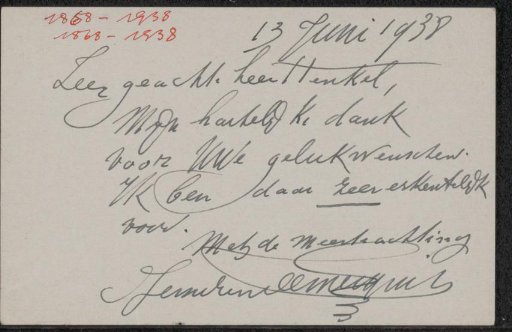 1868 - 1938
1868 - 1938
13 Juni 1938
Zeer geachte heer Henkel,
Mijn hartelijke dank
voor Uwe gelukwenschen.
Ik ben daar zeer erkentelijk
voor.
Met de meeste achting